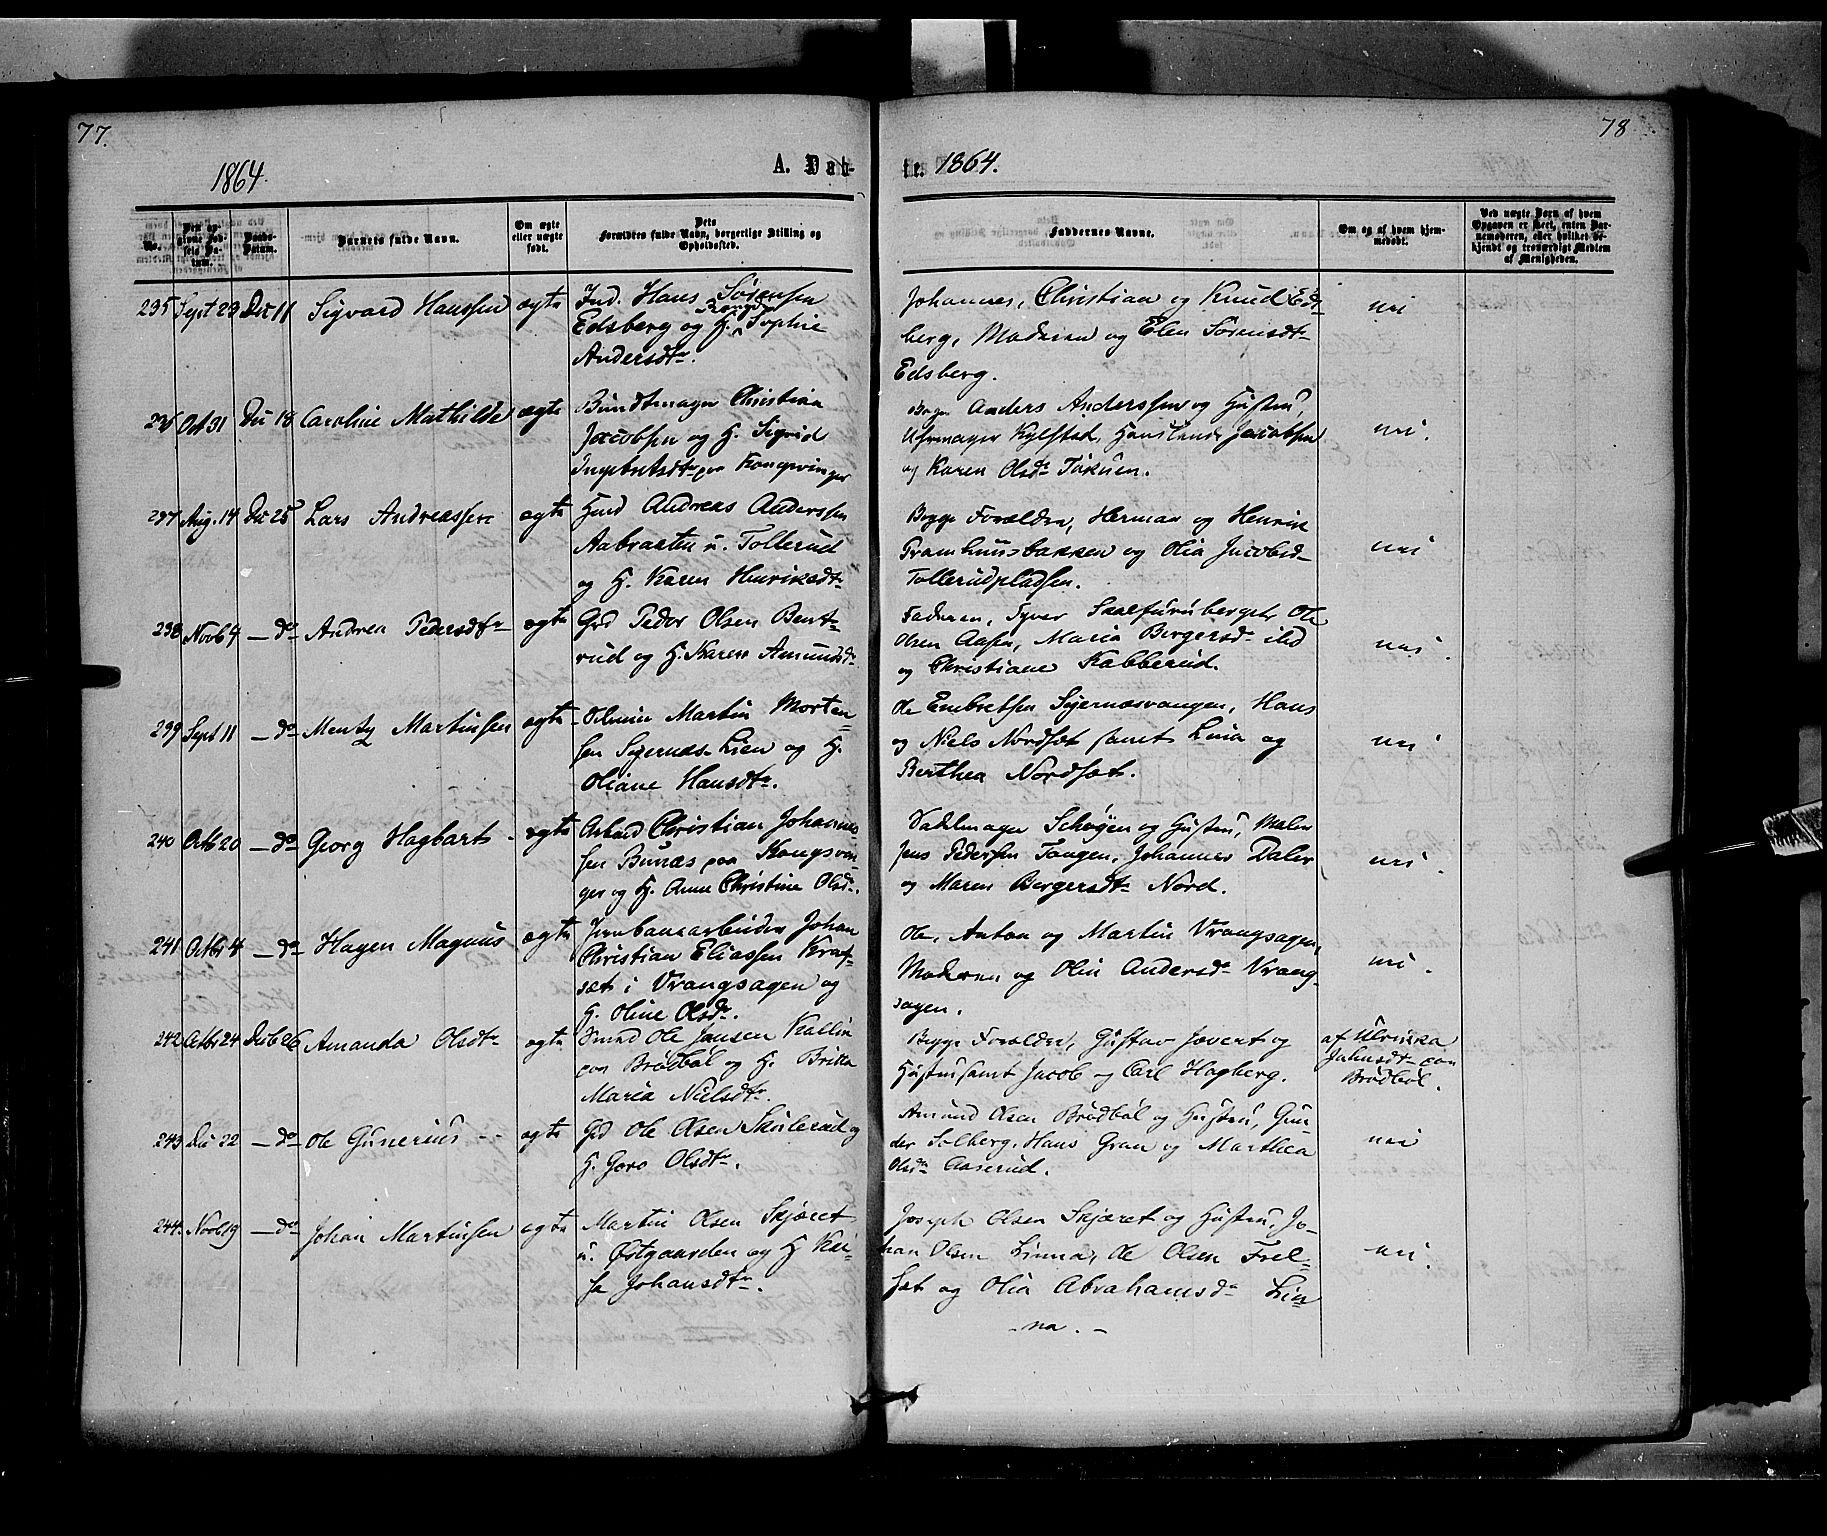 77.
1864.
A. Dåb-
No.
Den opgivne Fødsels Datum.
Daabs-Datum.
Barnets fulde Navn.
Om ægte eller uægte født.
Dets Forældres fulde Navn, borgerlige Stilling og Opholdssted.
235 Sept 29 Dec 11 Sigvard Hanssen ægte Ind. Hans Sørensen
Edsberg og H. Sophie
Andersdtr.
236 Oct 31 Dec 18 Caroline Mathilde ægte Bundtmager Christian
Jacobsen og H. Sigrid
Ingebretsdtr paa Kongsvinger
237 Aug. 14 Dec 25 Lars Andreassen ægte Huusd Andreas Anderssen
Aabraaten u. Tollerud
og H. Karen Henriksdtr
238 Novb 4 — do Andrea Pedersdtr ægte Grd Peder Olsen Bent-
rud og H. Karen Amundsdr
239 Sept 11 — do Mentz Martinsen ægte Martin Morten-
sen Sigernæs Lien og H.
Oliane Hansdtr.
240 Octb 20 — do Georg Hagbart ægte Arbmd Christian Johannes-
sen Bunæs paa Kongsvin-
ger og H. Anne Christine Olsdr.
241 Octbr 4 — do Hagen Magnus ægte Jernbanearbeider Johan
Christian Eliassen Kraf-
sæt i Vrangsagen og
H. Oline Olsdr.
242 Octbr 24 Decb 26 Amanda Olsdtr ægte Smed Ole Jansen Kallin
paa Brødbøl og H. Britta
Maria Nielsdtr.
243 Dec 22 — do Ole Gunerius ægte Grd Ole Olsen Skulerud og
H. Goro Olsdtr.
244. Novb 19 — do Johan Martinsen ægte Martin Olsen Skjæret
u. Østgaarden og H Kai-
sa Johansdtr.
78
te. 1864.
Faddernes Navne.
Om og af hvem hjemmedøbt.
Ved uægte Børn af hvem Opgaven er skeet, enten Barnemoderen, eller hvilket bekjendt og troværdigt Medlem af Menigheden.
Johannes, Christian og Knud Eds-
berg, Moderen og Elen Sørensdtr
Edsberg. nei
Anders Anderssen og Hustru,
Uhrmager Kylstad, Jacobsen
og Karen Olsdr. nei.
Begge Forældre, Herman og Henrik
Framhuusbakken og Olia Jacobsd-
Tollerudpladsen. nei
Faderen, Syver Skalfuruberget, Ole
Olsen Aasen, Maria Bergersdr ibd
og Christiane Kabberud. nei.
Ole Embretsen Sigernæsvangen, Hans
og Niels Nordsæt samt Lina og
Berthea Nordsæt. nei
Sadelmager Schøyen og Hustru, Maler
Jens Pedersen Tangen, Johannes Daler
og Maren Bergersdtr Nord. nei
Ole, Anton og Martin Vrangsagen,
Moderen og Olia Andersdr Vrang-
sagen. nei.
Begge Forældre, Gustav Jævert og
Hustru samt Jacob og Carl Hagberg. af Ulriska
Jahnsdtr paa
Brødbøl.
Amund Olsen Brødbøl og Hustru, Gun-
der Solberg, Hans Gran og Marthea
Olsdr Aaserud. nei
Joseph Olsen Skjæret og Hustru, Jo-
han Olsen Linna, Ole Olsen Frel-
sæt og Olia Abrahamsdr Lin-
na. nei.